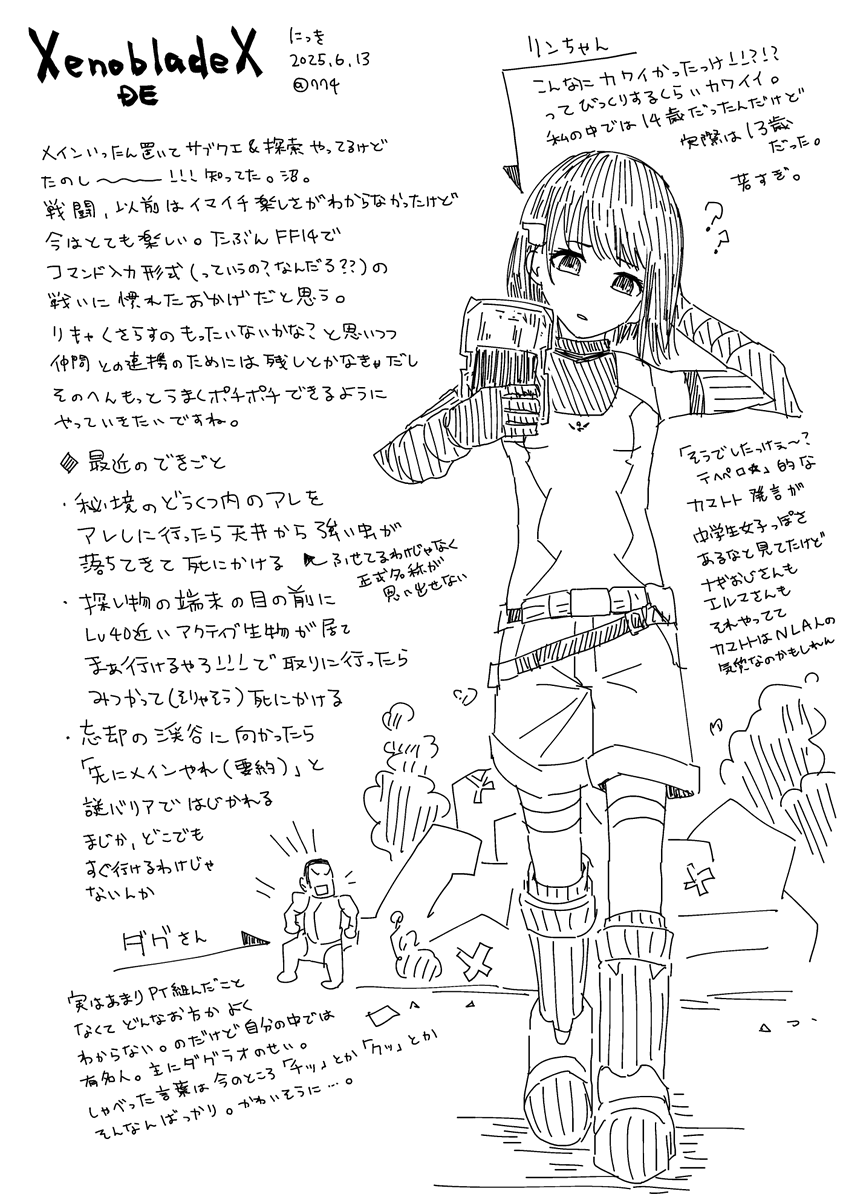 XenobladeX
DE
にっき
2025.6.13
@774
リンちゃん
こんなにカワイかったっけ!!?!?
ってびっくりするくらいカワイイ。
私の中では14歳だったんだけど
実際は13歳
だった。
若すぎ。
メインいったん置いてサブクエ&探索やってるけど
たのし〜〜〜!!!知ってた。沼。
戦闘、以前はイマイチ楽しさがわからなかったけど
今はとても楽しい。たぶんFF14で
コマンド入力形式(っていうの?なんだろ??)の
戦いに慣れたおかげだと思う。
リキャくさらすのもったいないかな?と思いつつ
仲間との連携のためには残しとかなきゃだし
そのへんもっとうまくポチポチできるように
やっていきたいですね。
◆最近のできごと
・秘境のどうくつ内のアレを
アレしに行ったら天井から強い虫が
落ちてきて死にかける
ふせてるわけじゃなく
正式名称が
思い出せない
・探し物の端末の目の前に
Lv40近いアクティブ生物が居て
まぁ行けるやろ!!!で取りに行ったら
みつかって(そりゃそう)死にかける
・忘却の渓谷に向かったら
「先にメインやれ(要約)」と
謎バリアではじかれる
まじか、どこでも
すぐ行けるわけじゃ
ないんか
「そうでしたっけぇ〜?
テヘペロ☆」的な
カマトト発言が
中学生女子っぽさ
あるなと見てたけど
ナギおじさんも
エルマさんも
それやってて
カマトトはNLA人の
気質なのかもしれん
ダグさん
実はあまりPT組んだこと
なくてどんなお方かよく
わからない。のだけど自分の中では
有名人。主にダグラオのせい。
しゃべった言葉は今のところ「チッ」とか「クッ」とか
そんなんばっかり。かわいそうに…。